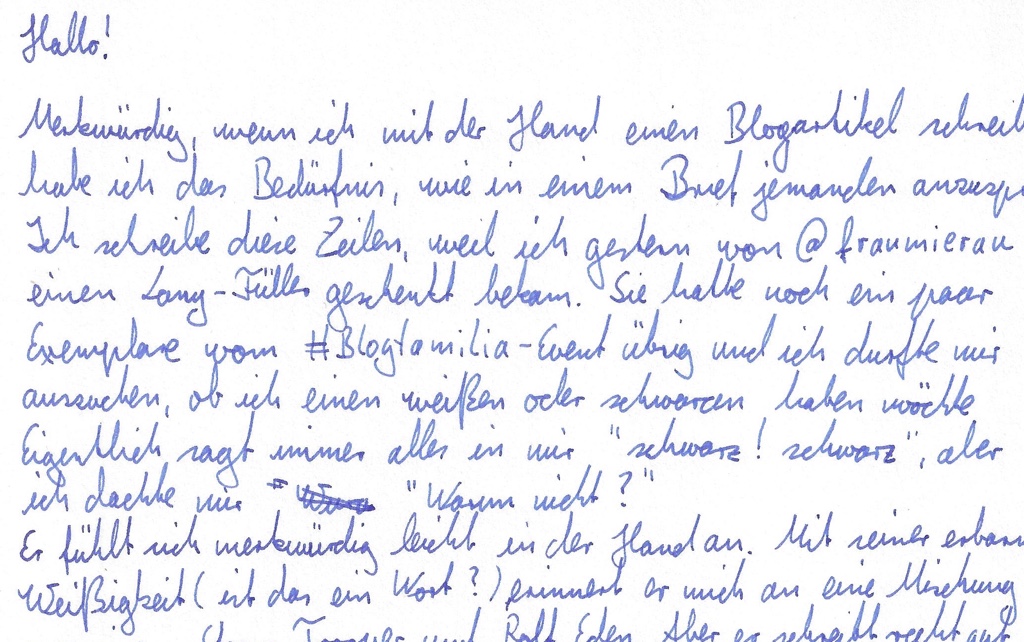 Hallo!
Merkwürdig, wenn ich mit der Hand einen Blogartikel schreib
habe ich das Bedürfnis, wie in einem Brief jemanden anzusp
Ich schreibe diese Zeilen, weil ich gestern von @fraumierau
einen Lamy-Füller geschenkt bekam. Sie hatte noch ein paar
Exemplare vom #Blogfamilia-Event übrig und ich durfte mir
aussuchen, ob ich einen weißen oder schwarzen haben möchte
Eigentlich sagt immer alles in mir "schwarz! schwarz", aber
ich dachte mir " "Warum nicht?"
Er fühlt sich merkwürdig leicht in der Hand an. Mit seiner erbarm
Weißigkeit (ist das ein Wort?) erinnert er mich an eine Mischung
und Rolf Eden. Aber er schreibt recht gut